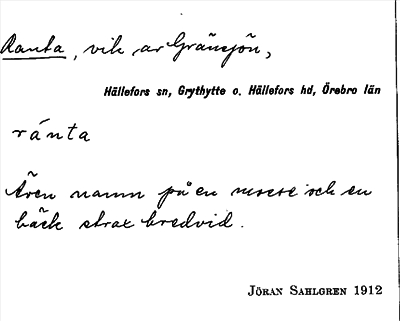 Ranta, vik av Gränsjön,
Hällefors sn, Grythytte o. Hällefors hd, Örebro län
ránta
Även namn på en mosse och en
bäck strax bredvid.
Jöran Sahlgren 1912